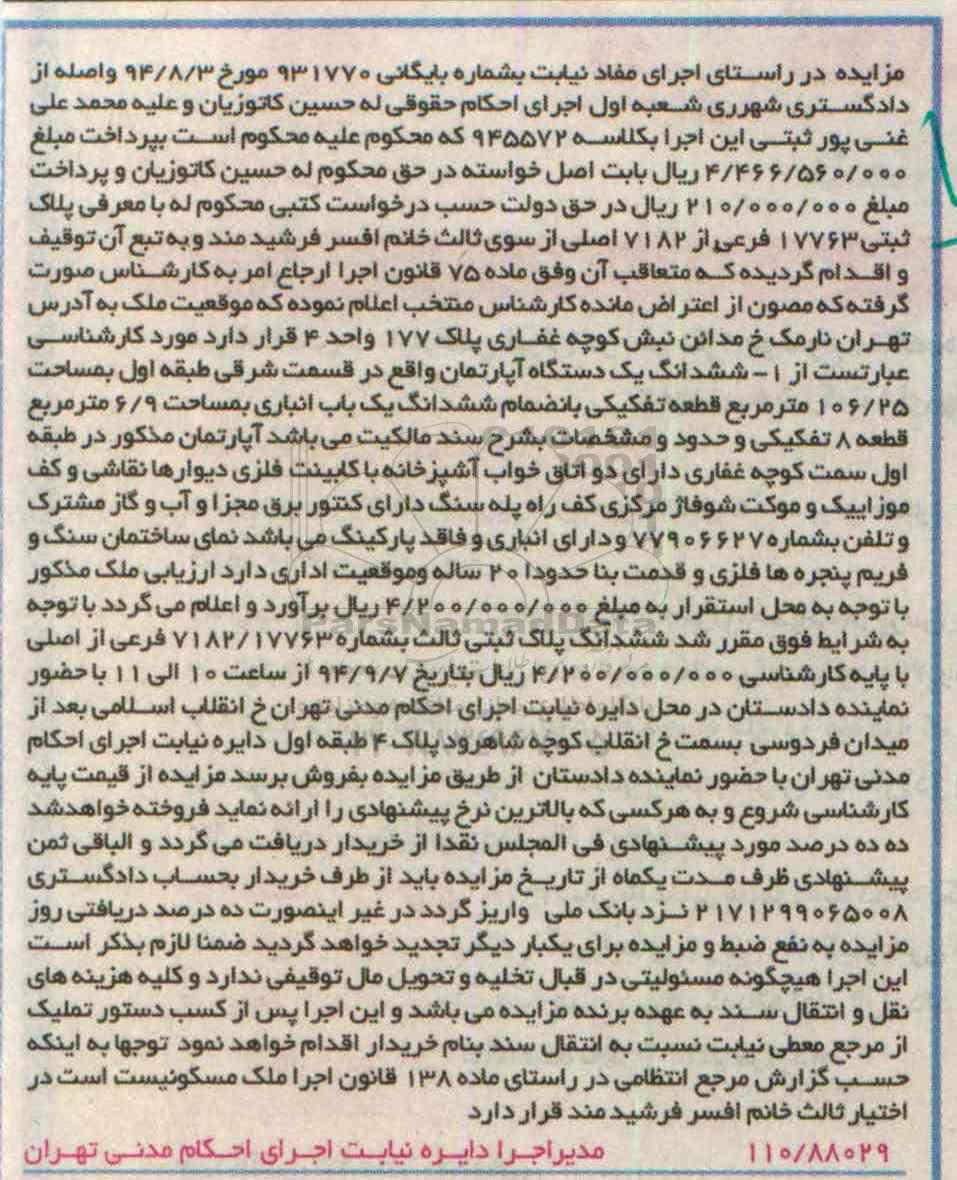 مزایده در راستای اجرای مفاد نیابت بشماره بایگانی ۹۳۱۷۷۰ مورخ ۹۴/۸/۳ واصله از
دادگستری شهرری شعبه اول اجرای احکام حقوقی له حسین کاتوزیان و علیه محمد علی
غنی پور ثبتی این اجرا بکلاسه ۹۴۵۵۷۲ که محکوم علیه محکوم است بپرداخت مبلغ
۴/۴۶۶/۵۶۰/۰۰۰ ریال بابت اصل خواسته در حق محکوم له حسین کاتوزیان و پرداخت
مبلغ ۲۱۰/۰۰۰/۰۰۰ ریال در حق دولت حسب درخواست کتبی محکوم له با معرفی پلاک
ثبتی ۱۷۷۶۳ فرعی از ۷۱۸۲ اصلی از سوی ثالث خانم افسر فرشید مند و به تبع آن توقیف
و اقدام گردیده که متعاقب آن وفق ماده ۷۵ قانون اجرا ارجاع امر به کارشناس صورت
گرفته که مصون از اعتراض مانده کارشناس منتخب اعلام نموده که موقعیت ملک به آدرس
تهران نارمک خ مدائن نبش کوچه غفاری پلاک ۱۷۷ واحد ۴ قرار دارد مورد کارشناسی
عبارتست از ۱- ششدانگ یک دستگاه آپارتمان واقع در قسمت شرقی طبقه اول بمساحت
۱۰۶/۲۵ مترمربع قطعه تفکیکی بانضمام ششدانگ یک باب انباری بمساحت ۶/۹ مترمربع
قطعه ۸ تفکیکی و حدود و مشخصات بشرح سند مالکیت می باشد آپارتمان مذکور در طبقه
اول سمت کوچه غفاری دارای دو اتاق خواب آشپزخانه با کابینت فلزی دیوارها نقاشی و کف
موزاییک و موکت شوفاژ مرکزی کف راه پله سنگ دارای کنتور برق مجزا و آب و گاز مشترک
و تلفن بشماره ۷۷۹۰۶۶۲۷ و دارای انباری و فاقد پارکینگ می باشد نمای ساختمان سنگ و
فریم پنجره ها فلزی و قدمت بنا حدودا ۲۰ ساله وموقعیت اداری دارد ارزیابی ملک مذکور
با توجه به محل استقرار به مبلغ ۴/۲۰۰/۰۰۰/۰۰۰ ریال برآورد و اعلام می گردد با توجه
ParsNamadData
به شرایط فوق مقرر شد ششدانگ پلاک ثبتی ثالث بشماره ۷۱۸۲/۱۷۷۶۳ فرعی از اصلی
با پایه کارشناسی ۴/۲۰۰/۰۰۰/۰۰۰ ریال بتاریخ ۹۴/۹/۷ از ساعت ۱۰ الی ۱۱ با حضور
نماینده دادستان در محل دایره نیابت اجرای احکام مدنی تهران خ انقلاب اسلامی بعد از
میدان فردوسی بسمت خ انقلاب کوچه شاهرود پلاک ۴ طبقه اول دایره نیابت اجرای احکام
مدنی تهران با حضور نماینده دادستان از طریق مزایده بفروش برسد مزایده از قیمت پایه
کارشناسی شروع و به هرکسی که بالاترین نرخ پیشنهادی را ارائه نماید فروخته خواهدشد
ده ده درصد مورد پیشنهادی فی المجلس نقدا از خریدار دریافت می گردد و الباقی ثمن
پیشنهادی ظرف مدت یکماه از تاریخ مزایده باید از طرف خریدار بحساب دادگستری
۲۱۷۱۲۹۹۰۶۵۰۰۸ نزد بانک ملی واریز گردد در غیر اینصورت ده درصد دریافتی روز
مزایده به نفع ضبط و مزایده برای یکبار دیگر تجدید خواهد گردید ضمنا لازم بذکر است
این اجرا هیچگونه مسئولیتی در قبال تخلیه و تحویل مال توقیفی ندارد و کلیه هزینه های
نقل و انتقال سند به عهده برنده مزایده می باشد و این اجرا پس از کسب دستور تملیک
از مرجع معطی نیابت نسبت به انتقال سند بنام خریدار اقدام خواهد نمود توجها به اینکه
حسب گزارش مرجع انتظامی در راستای ماده ۱۳۸ قانون اجرا ملک مسکونیست است در
اختیار ثالث خانم افسر فرشید مند قرار دارد
۱۱۰/۸۸۰۲۹ مدیراجرا دایره نیابت اجرای احکام مدنی تهران